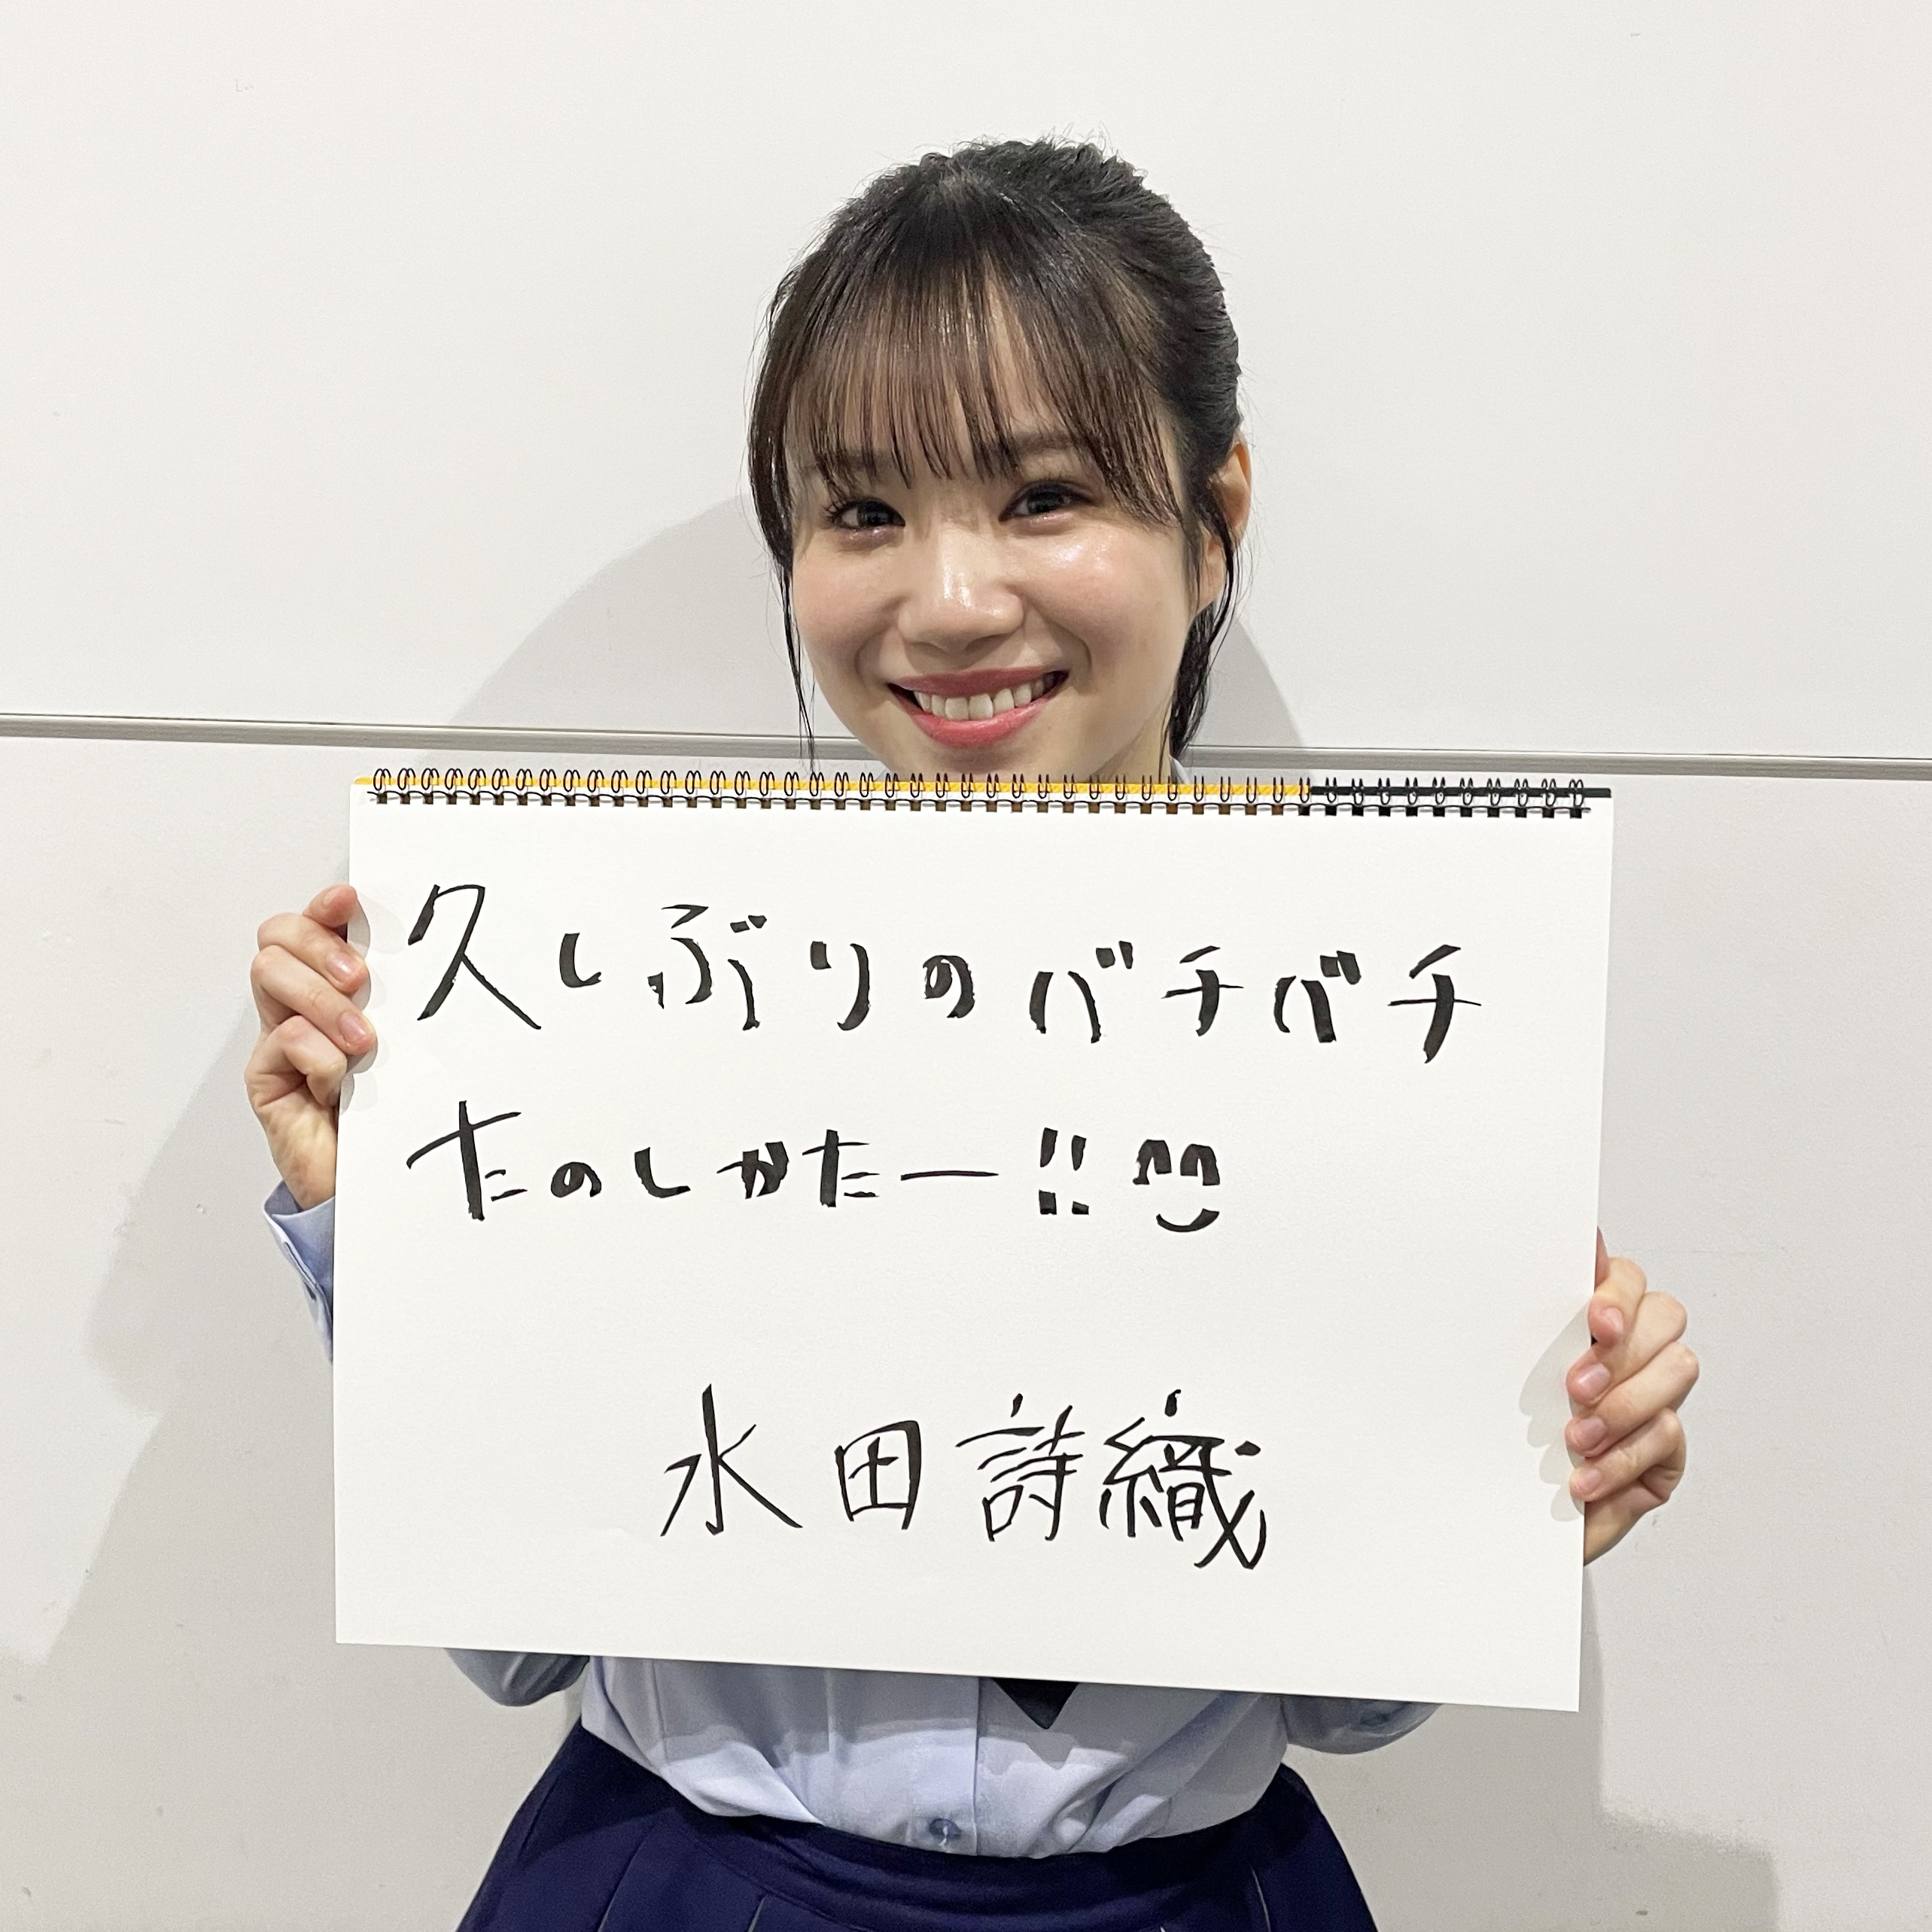 久しぶりのバチバチ
たのしかたー!!
水田詩織